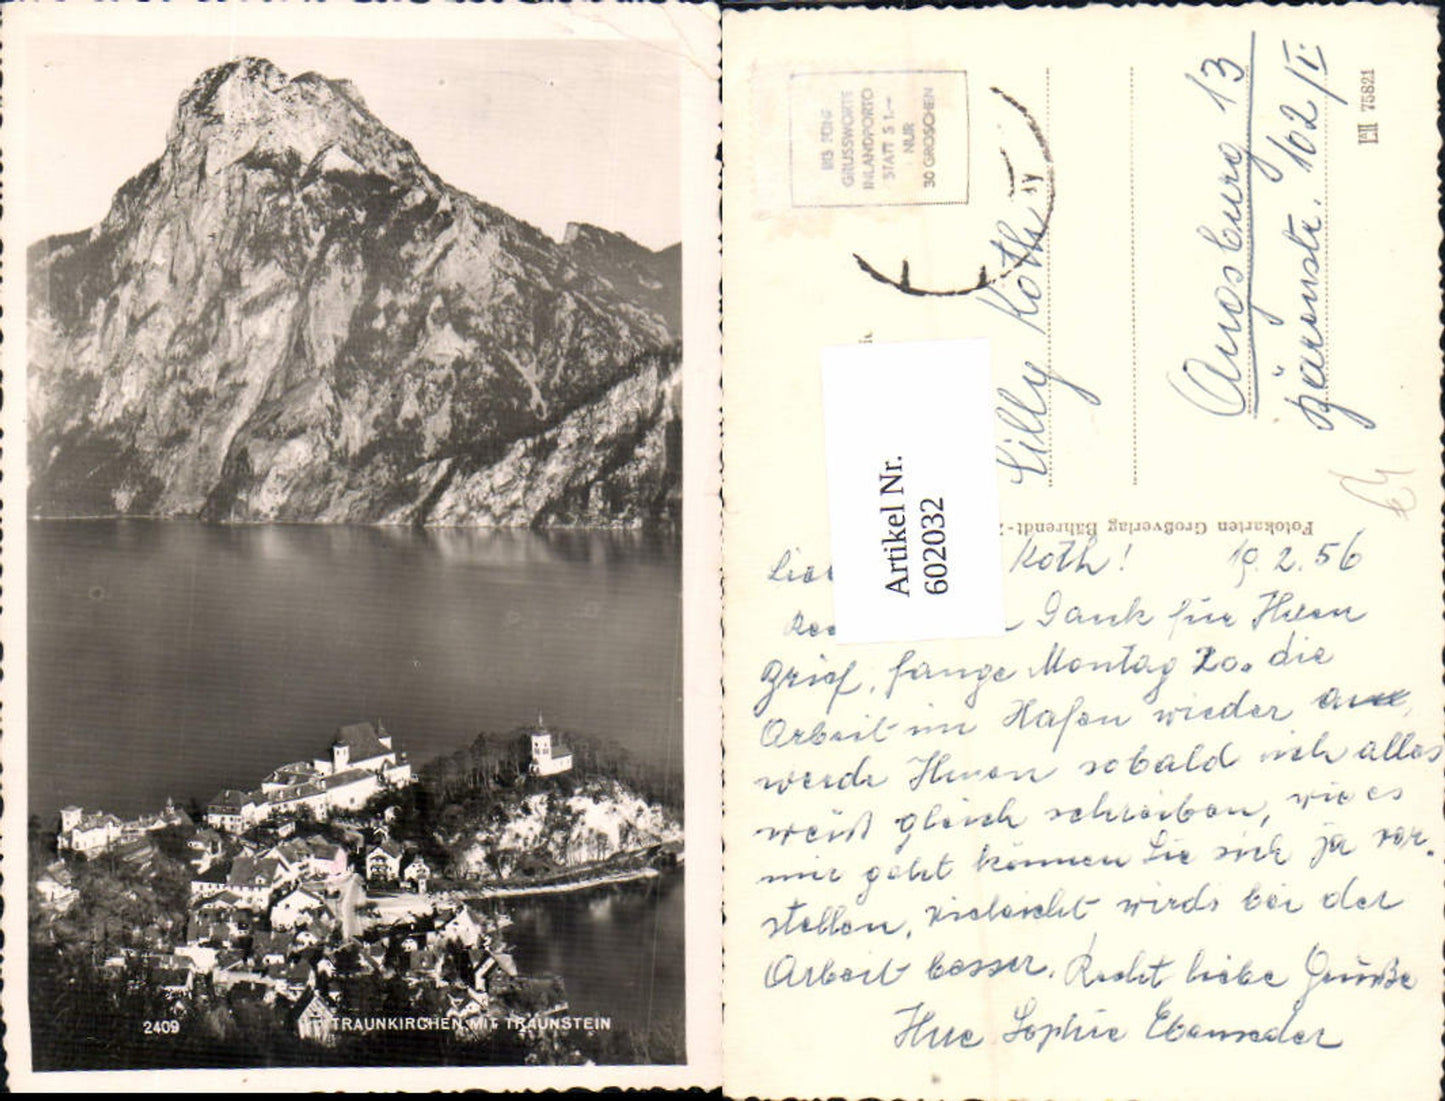 2409
TRAUNKIRCHEN MIT TRAUNSTEIN
BIS FÜNF
GRUSSWORTE
INLANDPORTO
STATT S 1.—
NUR
30 GROSCHEN
Lilly Koth
13
102/II
75821
Artikel Nr.
602032
Fotokarten Großverlag Bährendt-
Koth! 19.2.56
Dank für Ihren
Brief, fange Montag 20. die
Arbeit im Hafen wieder an,
werde Ihnen sobald ich alles
weiß gleich schreiben, wie es
mir geht können Sie sich ja vor-
stellen, vieleicht wirds bei der
Arbeit besser. Recht liebe Grüße
Ihre Sophie Ebenseder